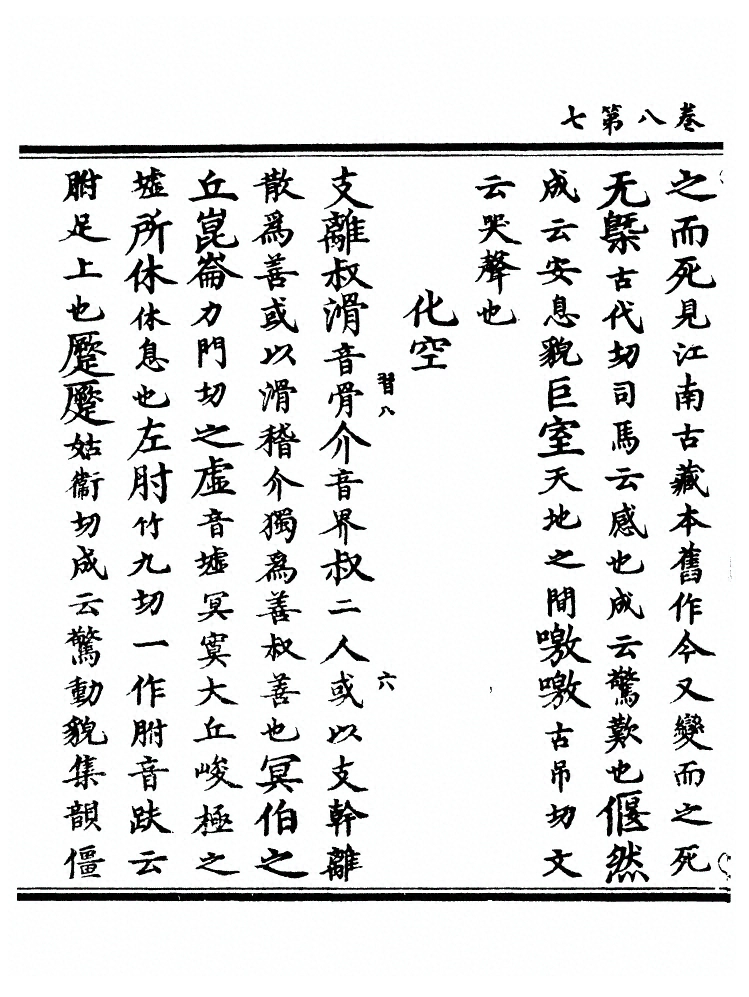 卷八第七
之而死見江南古藏本舊作今又變而之死
无槩古代切司馬云感也成云驚歎也偃然
成云安息貌巨室天地之間噭噭古吊切文
云哭聲也
化空
習八
六
支離叔滑音骨介音界叔二人或以支幹離
散爲善或以滑稽介獨爲善叔善也冥伯之
丘崑崙力門切之虛音墟冥寞大丘峻極之
墟所休休息也左肘竹九切一作胕音趺云
胕足上也蹷蹷姑衞切成云驚動貌集韻僵